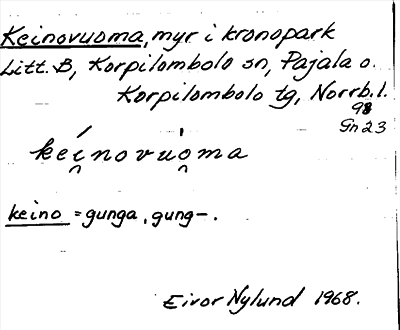 Keinovuoma, myr i kronopark
Litt. B, Korpilombolo sn, Pajala o.
Korpilombolo tg, Norrb. l.
98
Gn 23
keí̯novuó̯ma
keino = gunga, gung-.
Eivor Nylund 1968.